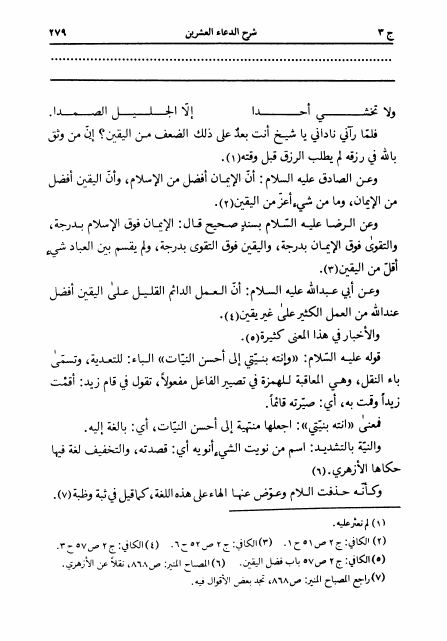 ج ٣ شرح الدعاء العشرين ٢٧٩
ولا تخشى أحدا إلّا الجليل الصمدا.
فلمّا رآني ناداني يا شيخ أنت بعدٌ على ذلك الضعف من اليقين؟ إنّ من وثق
بالله في رزقه لم يطلب الرزق قبل وقته(١).
وعن الصادق عليه السلام: أنّ الإيمان أفضل من الإسلام، وأنّ اليقين أفضل
من الإيمان، وما من شيء أعزّ من اليقين(٢).
وعن الرضا عليه السّلام بسند صحيح قال: الإيمان فوق الإسلام بدرجة،
والتقوىٰ فوق الإيمان بدرجة، واليقين فوق التقوى بدرجة، ولم يقسم بين العباد شيء
أقلّ من اليقين(٣).
وعن أبي عبدالله عليه السلام: أنّ العمل الدائم القليل علىٰ اليقين أفضل
عندالله من العمل الكثير علىٰ غير يقين(٤).
والأخبار في هذا المعنى كثيرة(٥).
قوله عليه السّلام: «وانته بنيّتي إلى أحسن النيّات» الباء: للتعدية، وتسمّى
باء النقل، وهي المعاقبة للهمزة في تصيير الفاعل مفعولاً، تقول في قام زيد: أقمْت
زيداً وقمت به، أي: صيّرته قائماً.
فمعنىٰ «انته بنيّتي»: اجعلها منتهية إلى أحسن النيّات، أي: بالغة إليه.
والنيّة بالتشديد: اسم من نويت الشيء أنويه أي: قصدته، والتخفيف لغة فيها
حكاها الأزهري.(٦)
وكأنّه حذفت اللام وعوّض عنها الهاء على هذه اللغة، كما قيل في ثبة وظبة(٧).
(١) لم نعثر عليه.
(٢) الكافي: ج ٢ ص ٥١ ح ١. (٣) الكافي: ج ٢ ص ٥٢ ح ٦. (٤) الكافي: ج ٢ ص ٥٧ ح ٣.
(٥) الكافي: ج ٢ ص ٥٧ باب فضل اليقين. (٦) المصباح المنير: ص ٨٦٨، نقلاً عن الأزهري.
(٧) راجع المصباح المنير: ص ٨٦٨، تجد بعض الأقوال فيه.